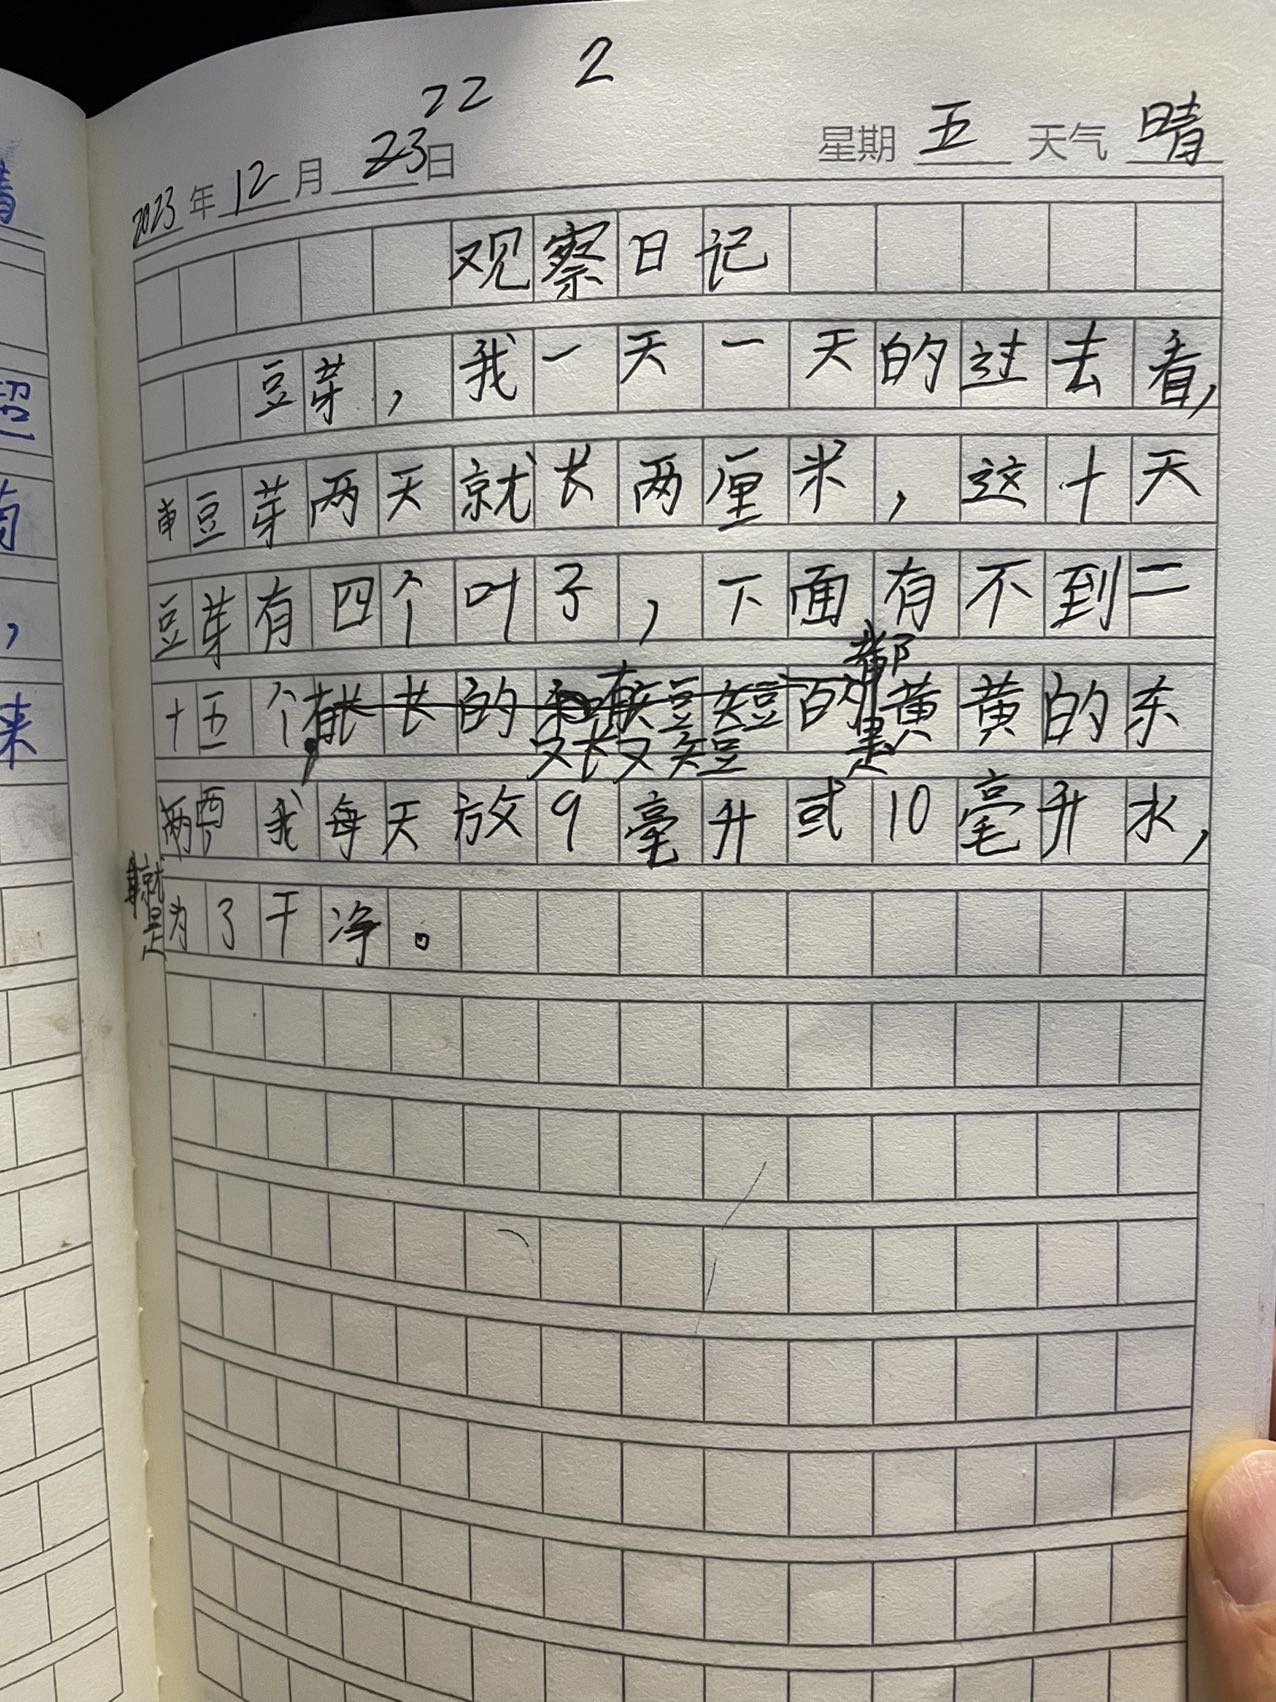 22 2
2023年12月23日 星期五 天气晴
观察日记
豆芽，我一天一天的过去看，
豆芽两天就长两厘米，这十天
豆芽有四个叶子，下面有不到二
都
十五个，长的短的黄黄的东
又长又短 是
西 我每天放9毫升或10毫升水，
就是
为了干净。
超
，
来